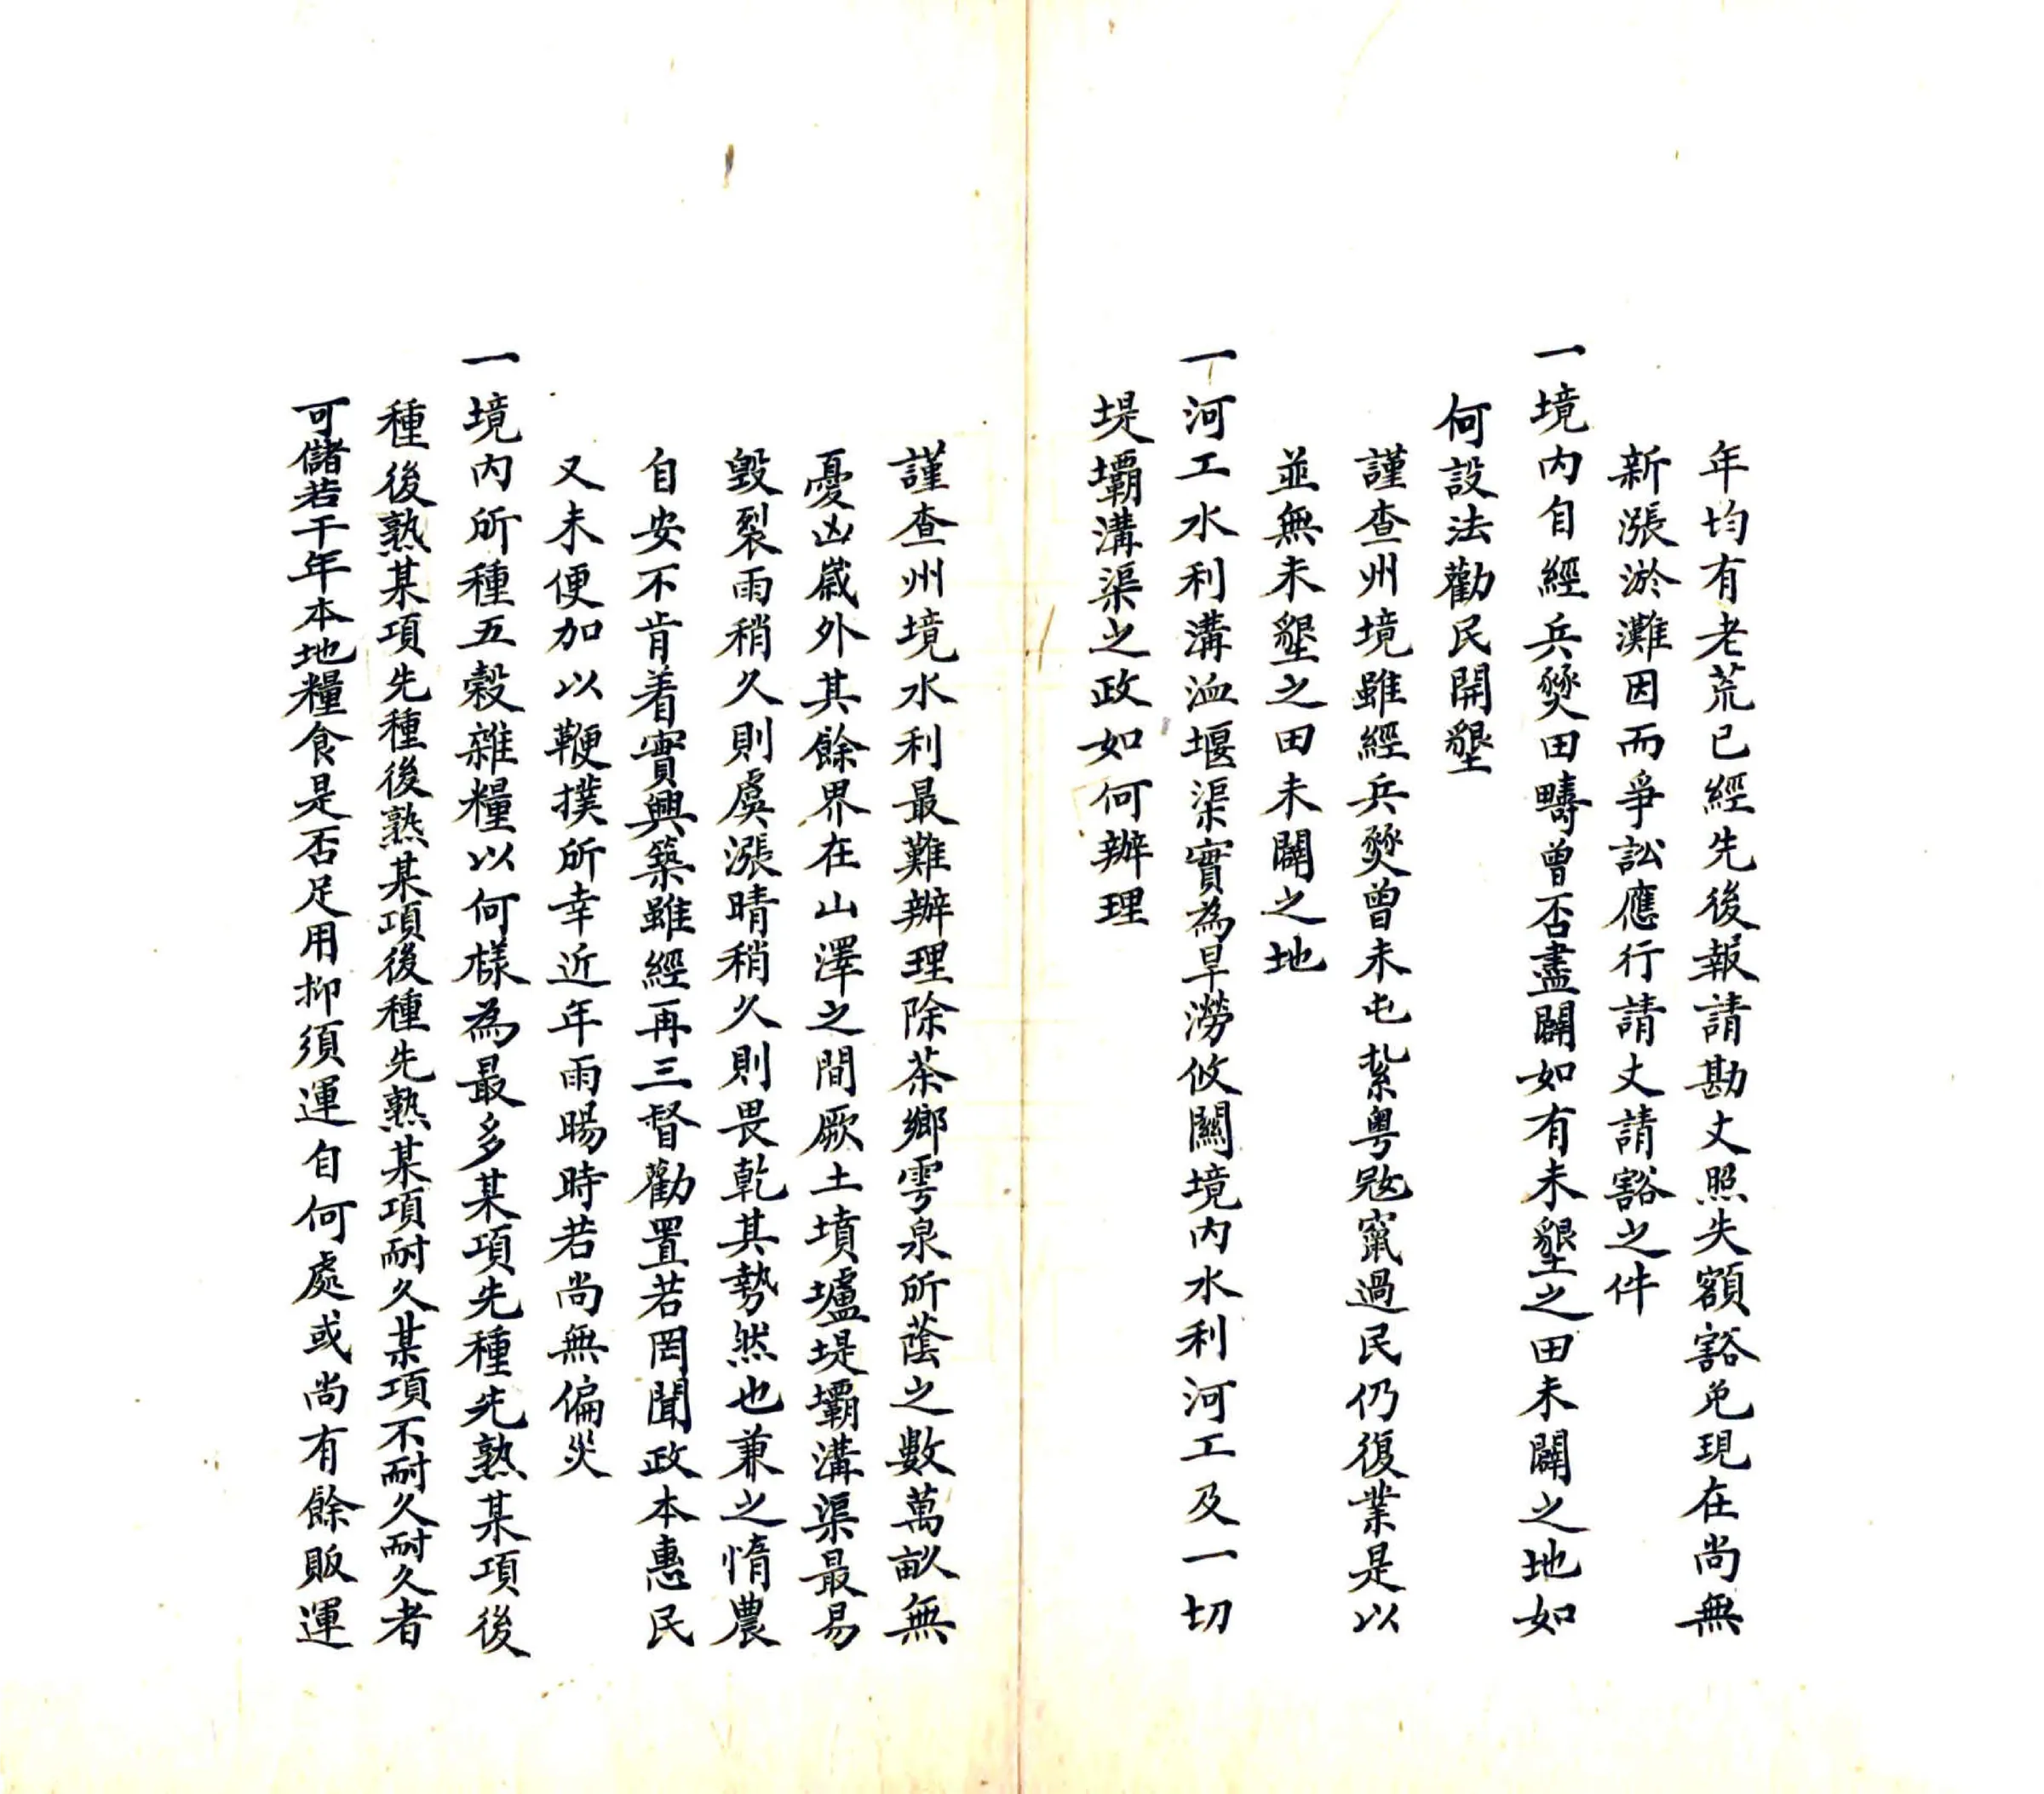 年均有老荒已經先後報請勘丈照失額豁免現在尚無
新漲淤灘因而爭訟應行請丈請豁之件
一境內自經兵燹田疇曾否盡闢如有未墾之田未闢之地如
何設法勸民開墾
謹查州境雖經兵燹曾未屯紮粵寇竄過民仍復業是以
並無未墾之田未闢之地
一河工水利溝洫堰渠實為旱澇攸關境內水利河工及一切
堤壩溝渠之政如何辦理
謹查州境水利最難辦理除茶鄉雩泉所蔭之數萬畝無
憂凶歲外其餘界在山澤之間厥土墳壚堤壩溝渠最易
毀裂雨稍久則虞漲晴稍久則畏乾其勢然也兼之惰農
自安不肯着實興築雖經再三督勸置若罔聞政本惠民
又未便加以鞭撲所幸近年雨暘時若尚無偏災
一境內所種五穀雜糧以何樣為最多某項先種先熟某項後
種後熟某項先種後熟某項後種先熟某項耐久某項不耐久耐久者
可儲若干年本地糧食是否足用抑須運自何處或尚有餘販運